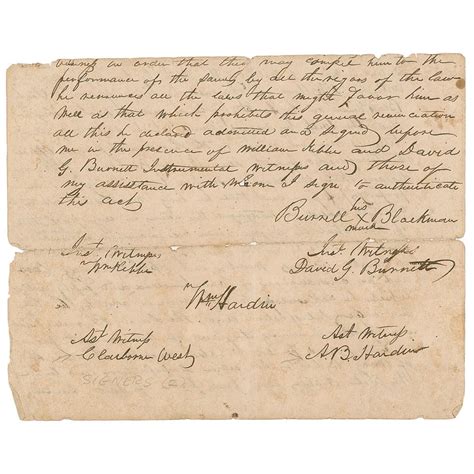 in order that this may compel him to the
performance of the same, by all the rigors of the law
he renounces all the laws that might favor him as
well as that which prohibits this general renunciation
all this he declared admitted and signed before
me in the presence of William Kibbe and David
G. Burnett Instrumental witness and those of
my assistance with whom I sign to authenticate
this act
his
Burrell X Blackman
mark
Inst. Witness Inst. Witness
Wm Kibbe David G. Burnett
Wm Hardin
Ast Witness Ast Witness
Claiborne West A. B. Hardin
SIGNERS